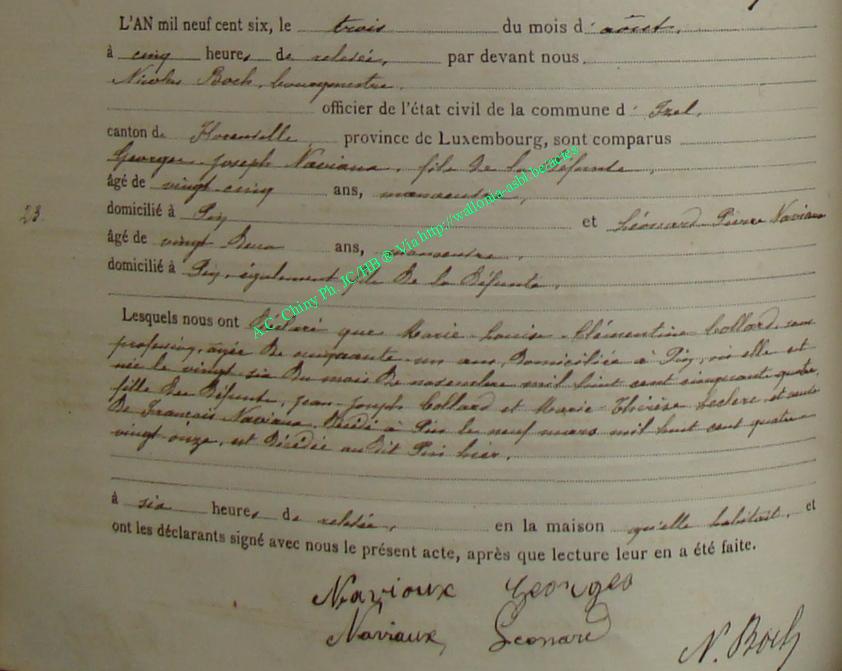 L'AN mil neuf cent six, le trois du mois d'août,
à cinq heures de relevée, par devant nous
Nicolas Boch, bourgmestre
officier de l'état civil de la commune d' Izel,
canton de Florenville province de Luxembourg, sont comparus
Georges Joseph Naviaux, fils de la défunte,
âgé de vingt-cinq ans, manoeuvre,
23. domicilié à Pin et Léonard Pierre Naviaux
âgé de vingt deux ans, manoeuvre,
domicilié à Pin, également fils de la défunte,
Lesquels nous ont déclaré que Marie-Louise-Clémentine Collard, sans
profession, âgée de cinquante-un ans, domiciliée à Pin, où elle est
née le vingt six du mois de novembre mil huit cent cinquante quatre,
fille des défunts, Jean-Joseph Collard et Marie-Thérèse Leclerc, et veuve
de François Naviaux, décédé à Pin le neuf mars mil huit cent quatre-
vingt onze, est décédée audit Pin hier,
à six heures de relevée, en la maison qu'elle habitait, et
ont les déclarants signé avec nous le présent acte, après que lecture leur en a été faite.
Navioux Georges
Naviaux Leonard
N. Boch
A.C. Chiny Ph. JC/HB ® Via http://wallonia-asbl.be/actes